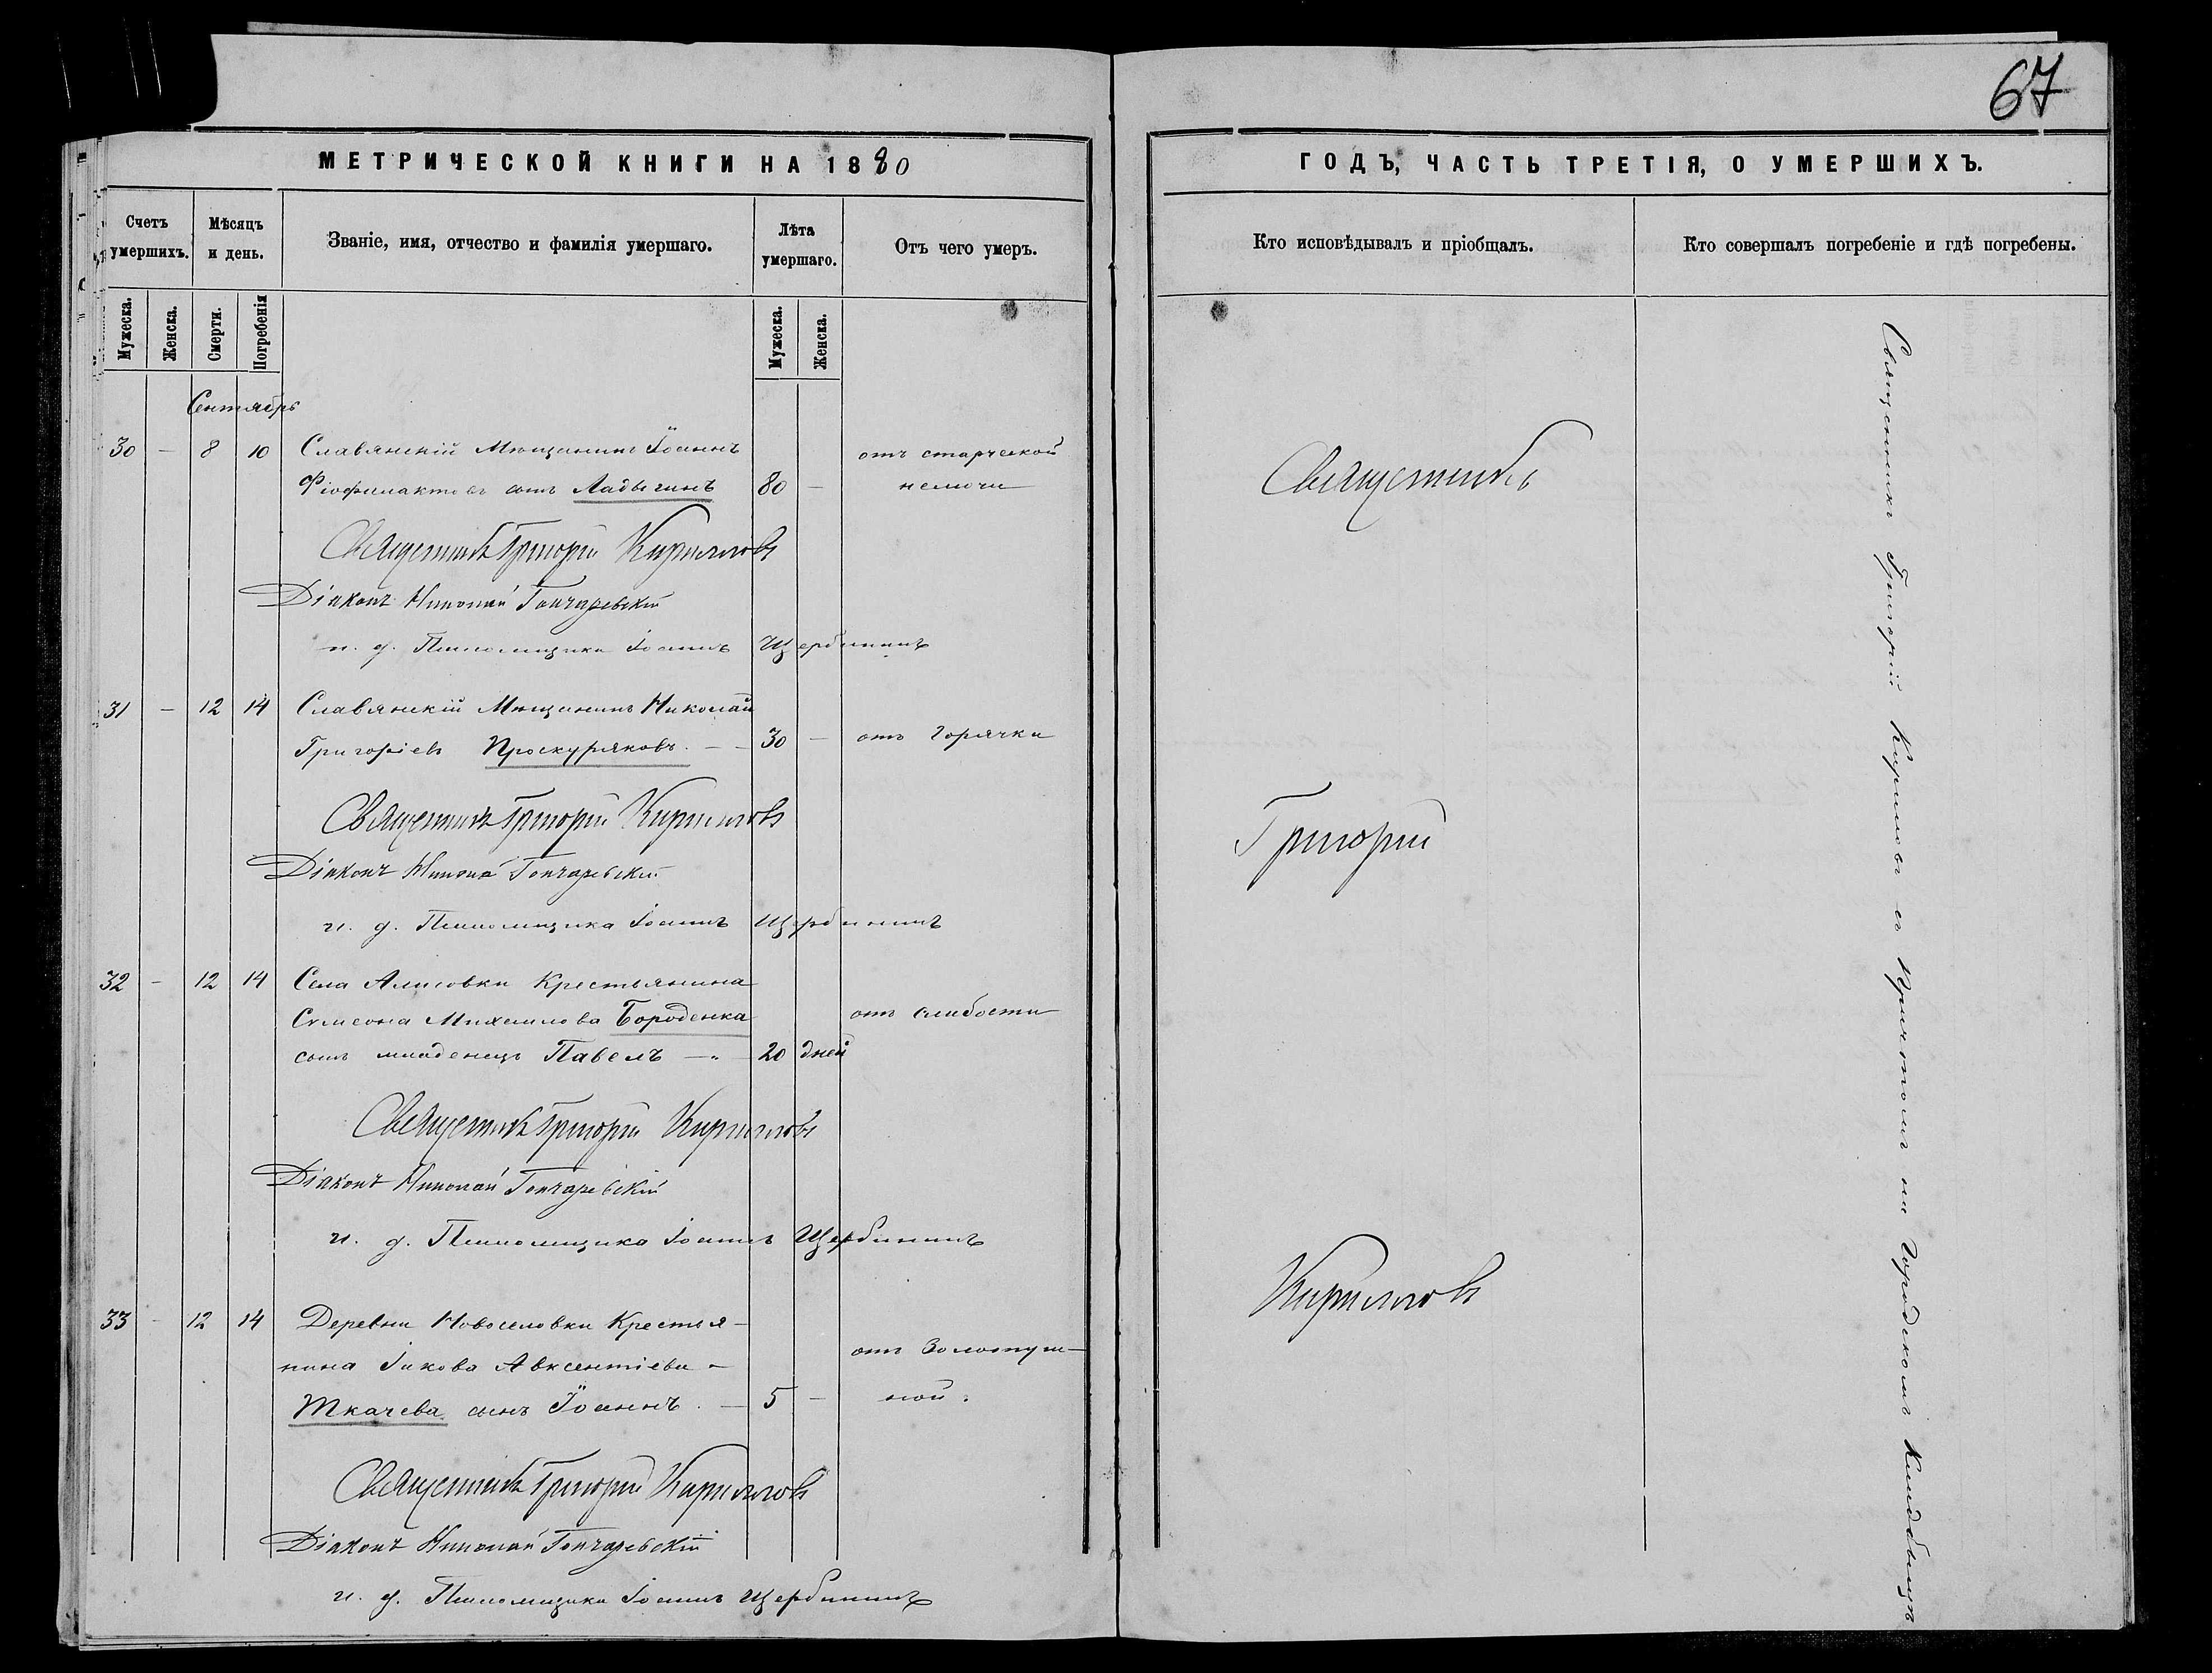 67
МЕТРИЧЕСКОЙ КНИГИ НА 1880
ГОДЪ, ЧАСТЬ ТРЕТІЯ, О УМЕРШИХЪ.
Счетъ умершихъ.
Мѣсяцъ и день.
Званіе, имя, отчество и фамилія умершаго.
Лѣта умершаго.
Отъ чего умеръ.
Кто исповѣдывалъ и пріобщалъ.
Кто совершалъ погребеніе и гдѣ погребены.
Мужеска.
Женска.
Смерти.
Погребенія
Мужеска.
Женска.
Сентябрь
30 — 8 10 Славянскій Мѣщанинъ Іоаннъ отъ старческой
Фіофилактовъ сынъ Ладыгинъ 80 — немочи
Священникъ Григорій Кирилловъ
Діаконъ Николай Гончаревскій
и. д. Псаломщика Іоаннъ Щербининъ
31 — 12 14 Славянскій Мѣщанинъ Николай
Григоріевъ Проскуряковъ. — 30 — отъ Горячки
Священникъ Григорій Кирилловъ
Діаконъ Николай Гончаревскій
и. д. Псаломщика Іоаннъ Щербининъ
32 — 12 14 Села Алисовки Крестьянина
Сѵмеона Михаилова Бороденка отъ слабости
сынъ младенецъ Павелъ — 20 дней
Священникъ Григорій Кирилловъ
Діаконъ Николай Гончаревскій
и. д. Псаломщика Іоаннъ Щербининъ
33 — 12 14 Деревни Новоселовки Крестья-
нина Іакова Авксентіева отъ Золотуш-
Ткачева сынъ Іоаннъ. — 5 — ной.
Священникъ Григорій Кирилловъ
Діаконъ Николай Гончаревскій
и. д. Псаломщика Іоаннъ Щербининъ
Священникъ
Григорій
Кирилловъ
Священникъ Григорій Кириловъ съ Причтомъ на Городскомъ Кладбищѣ